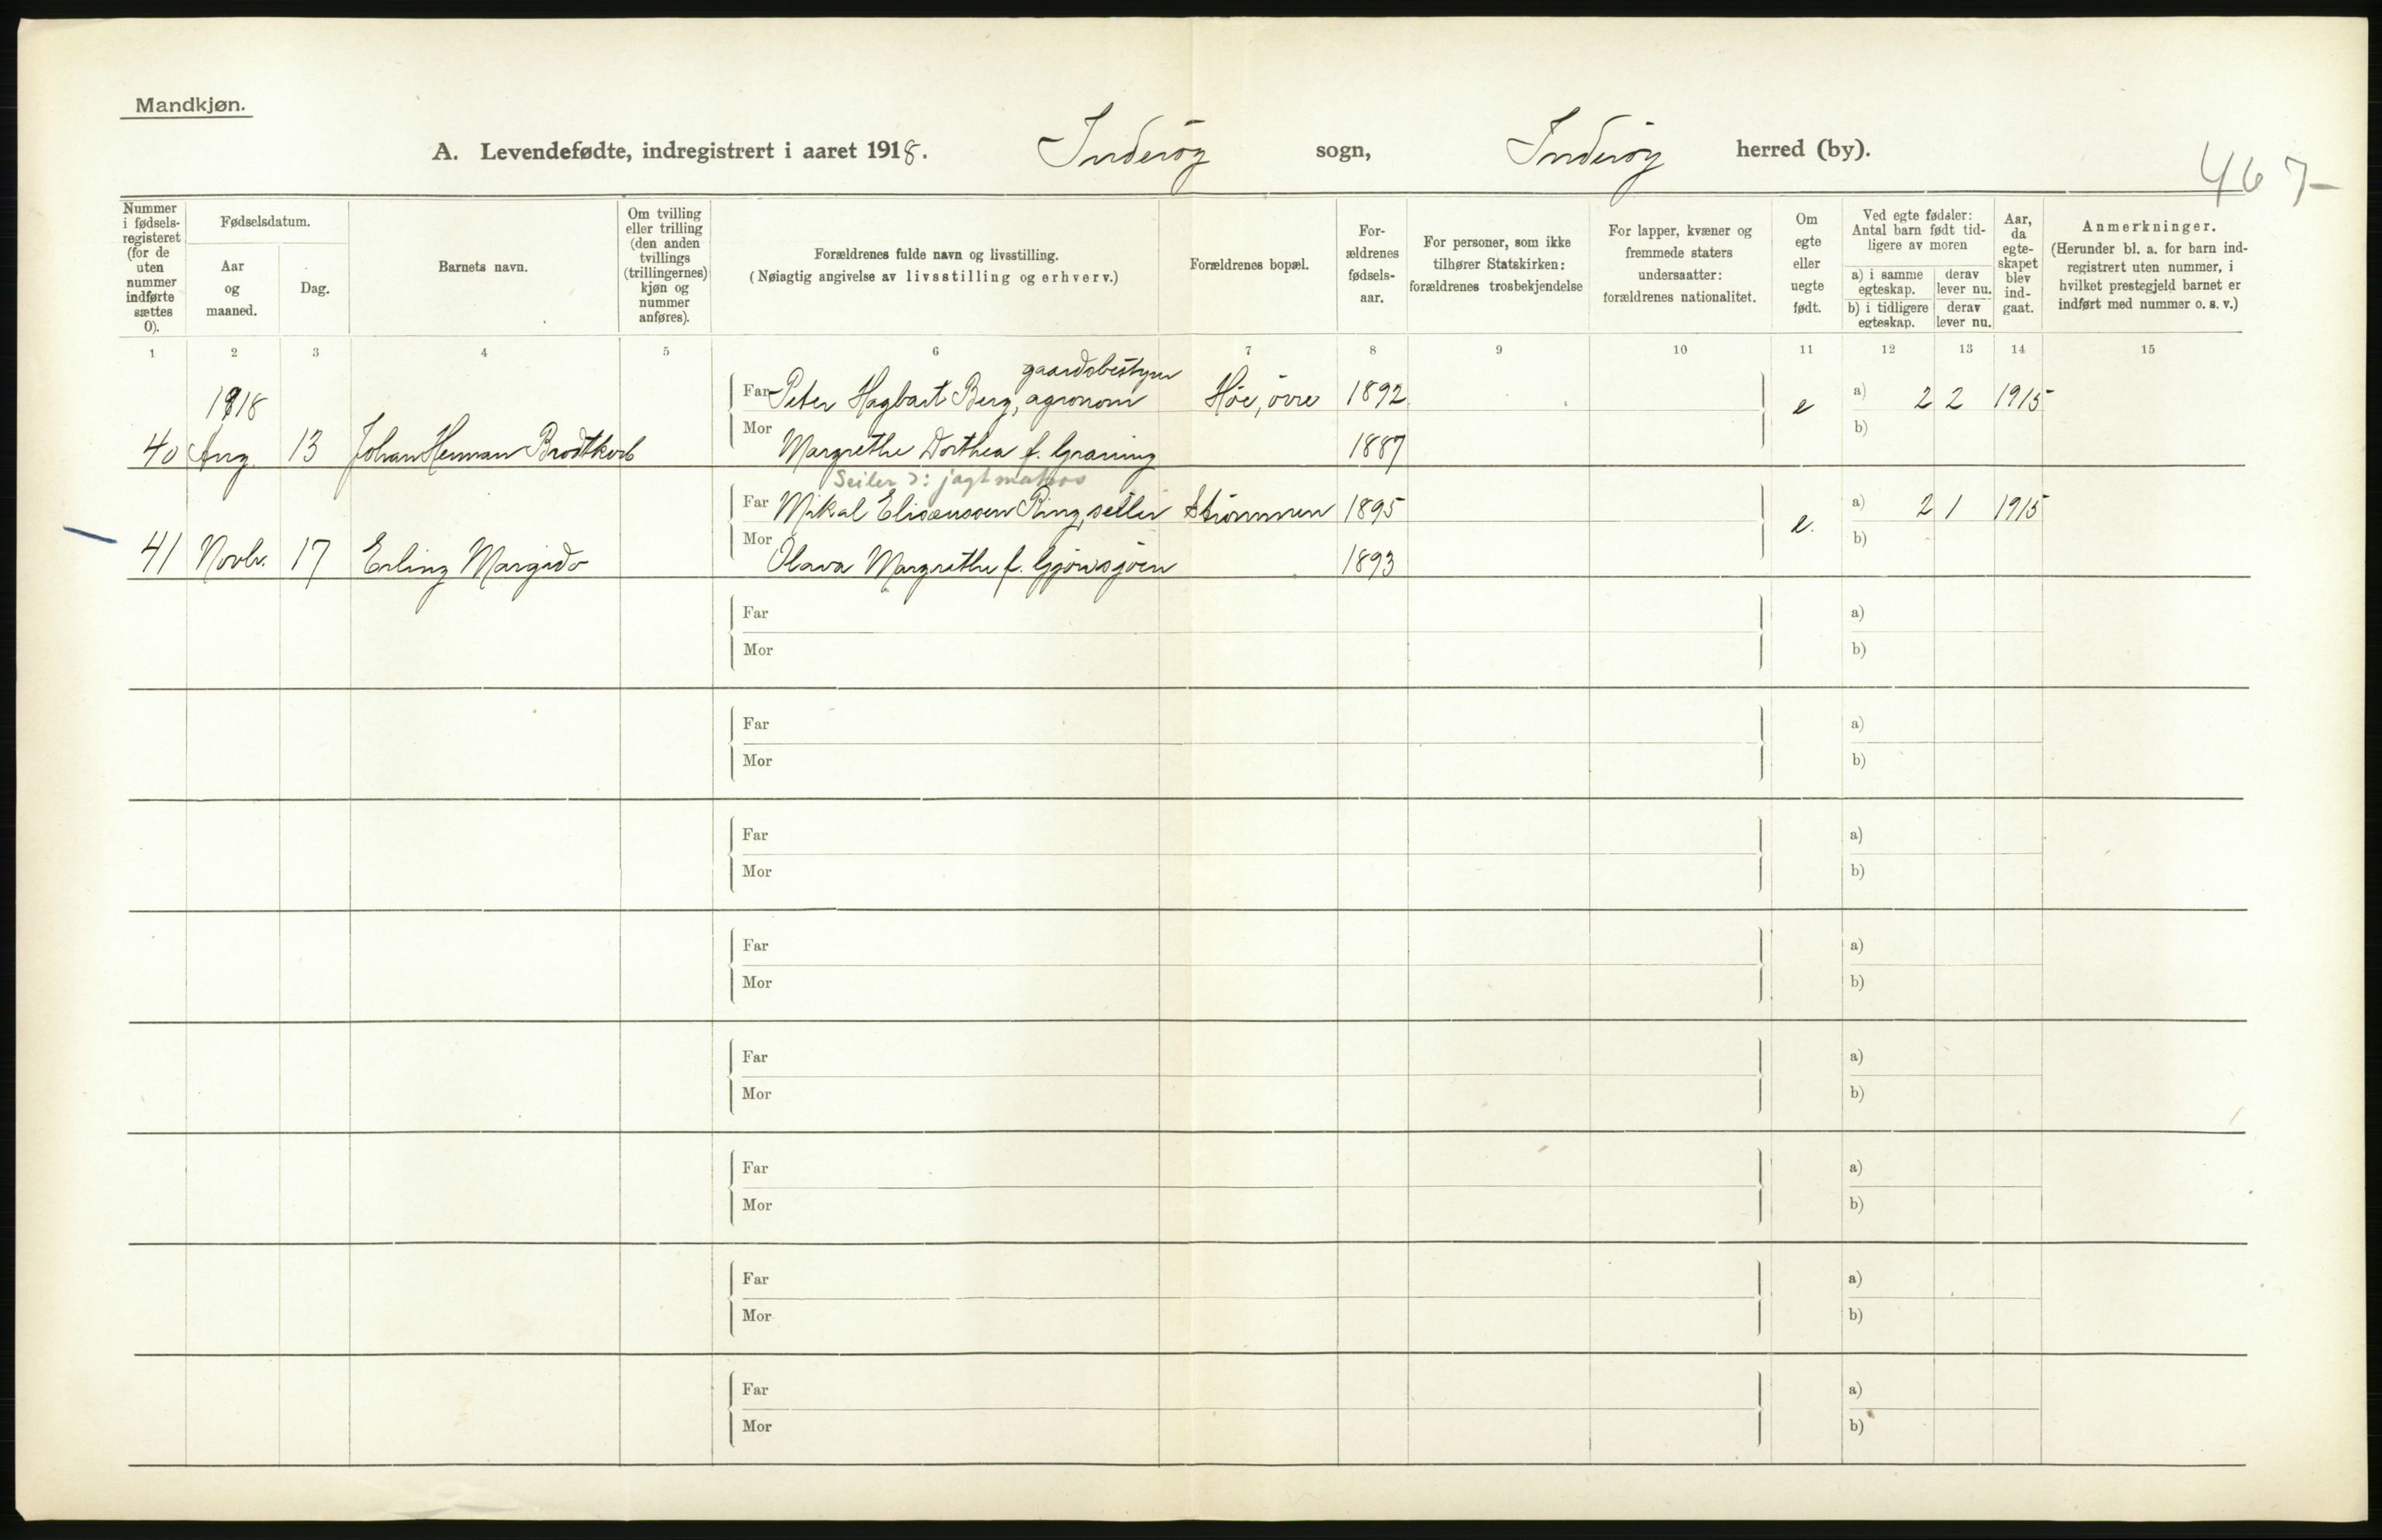 Mandkjøn.
A. Levendefødte, indregistrert i aaret 1918. Inderøy sogn, Inderøy herred (by).
467
Nummer i fødsels-registeret (for de uten nummer indførte sættes 0).
Fødselsdatum.
Aar og maaned.
Dag.
Barnets navn.
Om tvilling eller trilling (den anden tvillings (trillingernes) kjøn og nummer anføres).
Forældrenes fulde navn og livsstilling.
(Nøiagtig angivelse av livsstilling og erhverv.)
Forældrenes bopæl.
For-ældrenes fødsels-aar.
For personer, som ikke tilhører Statskirken: forældrenes trosbekjendelse
For lapper, kvæner og fremmede staters undersaatter: forældrenes nationalitet.
Om egte eller uegte født.
Ved egte fødsler: Antal barn født tid-ligere av moren
a) i samme egteskap.
derav lever nu.
b) i tidligere egteskap.
derav lever nu.
Aar, da egte-skapet blev ind-gaat.
Anmerkninger.
(Herunder bl. a. for barn ind-registrert uten nummer, i hvilket prestegjeld barnet er indført med nummer o. s. v.)
1 2 3 4 5 6 7 8 9 10 11 12 13 14 15
gaardsbestyrer
1918 Far Peter Hagbart Berg, agronom Høe, øvre 1892 e a) 2 2 1915
40 Aug. 13 Johan Herman Brodtkorb Mor Margrethe Dorthea f. Graning 1887 b)
Seiler ɔ: jagtmatros
Far Mikal Elisæussen Ring, seiler Strømmen 1895 e. a) 2 1 1915
41 Novbr. 17 Erling Margido Mor Olava Margrethe f. Gjørvsjøen 1893 b)
Far a)
Mor b)
Far a)
Mor b)
Far a)
Mor b)
Far a)
Mor b)
Far a)
Mor b)
Far a)
Mor b)
Far a)
Mor b)
Far a)
Mor b)